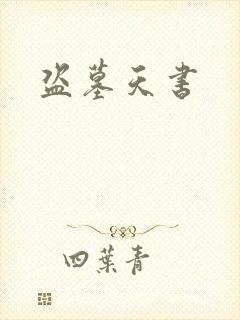 盗墓天书
四葉青